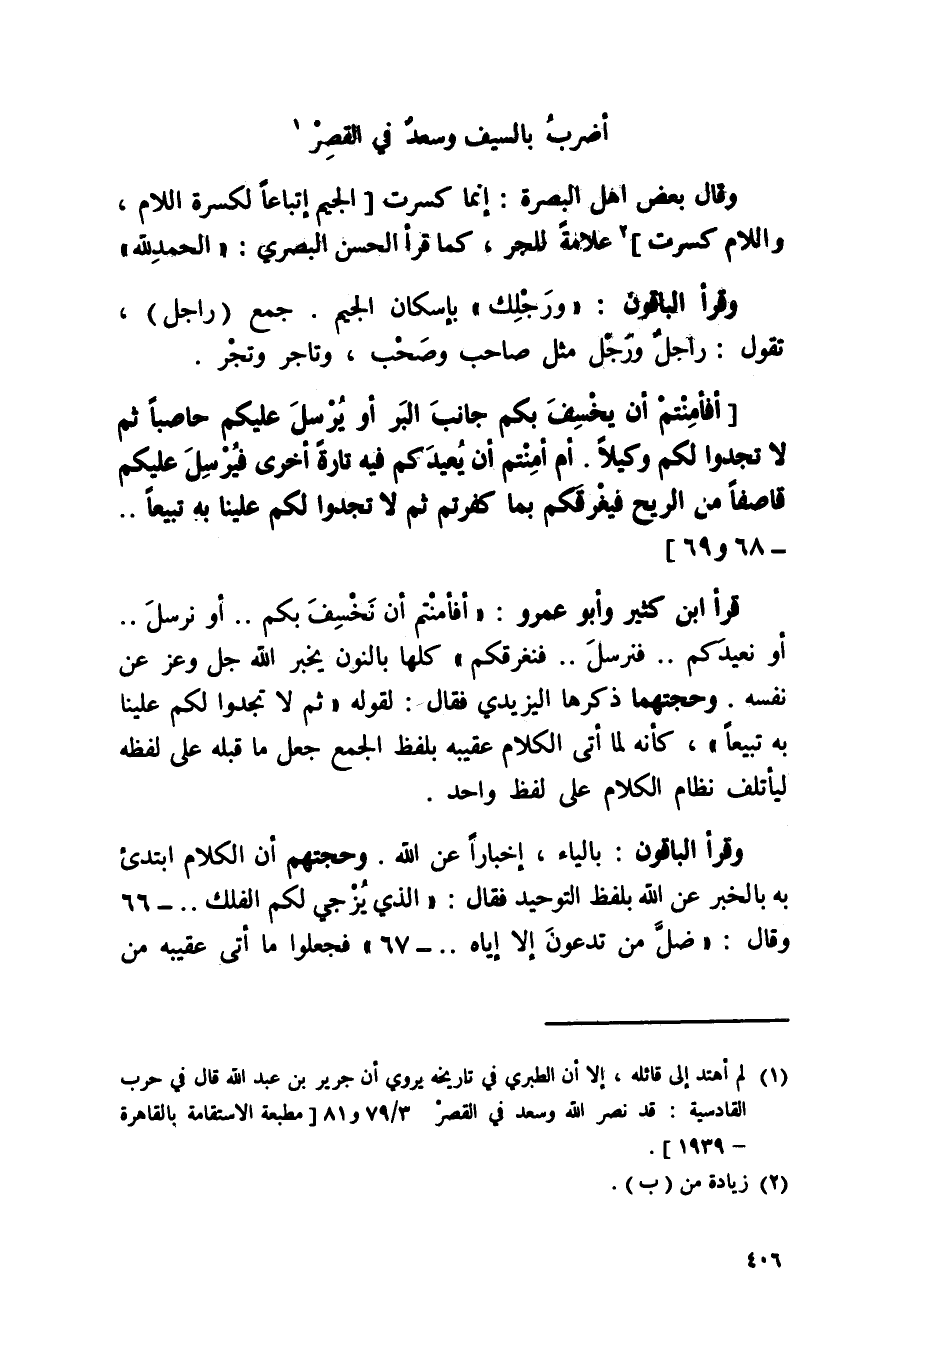 أضربُ بالسيف وسعدٌ في القصِرْ ١
وقال بعض اهل البصرة : إنما كسرت [ الجيم إتباعاً لكسرة اللام ،
واللام كسرت ]٢ علامةً للجر ، كما قرأ الحسن البصري : « الحمدِلله »
وقرأ الباقون : « ورَجْلِك » بإسكان الجيم . جمع ( راجل ) ،
تقول : راجلٌ ورَجْل مثل صاحب وصَحْب ، وتاجر وتجْر .
[ أفأمِنْتمْ أن يخْسِفَ بكم جانبَ البَر أو يُرْسلَ عليكم حاصباً ثم
لا تجدوا لكم وكيلاً . أم أمِنْتم أن يُعيدَكم فيه تارةً أخرى فيُرْسِلَ عليكم
قاصفاً من الريح فيغْرقَكم بما كفرتم ثم لا تجدوا لكم علينا به تبيعاً ..
– ٦٨ و ٦٩ ]
قرأ ابن كثير وأبو عمرو : « أفأمنْتم أن نَخْسِفَ بكم .. أو نرسلَ ..
أو نعيدَكم .. فنرسلَ .. فنغرقكم » كلها بالنون يخبر الله جل وعز عن
نفسه . وحجتهما ذكرها اليزيدي فقال : لقوله « ثم لا تجدوا لكم علينا
به تبيعاً » ، كأنه لما أتى الكلام عقيبه بلفظ الجمع جعل ما قبله على لفظه
ليأتلف نظام الكلام على لفظ واحد .
وقرأ الباقون : بالياء ، إخباراً عن الله . وحجتهم أن الكلام ابتدئ
به بالخبر عن الله بلفظ التوحيد فقال : « الذي يُزْجي لكم الفلك .. – ٦٦
وقال : « ضلَّ من تدعونَ إلا إياه .. – ٦٧ » فجعلوا ما أتى عقيبه من
(١) لم أهتد إلى قائله ، إلا أن الطبري في تاريخه يروي أن جرير بن عبد الله قال في حرب
القادسية : قد نصر الله وسعد في القصرْ ٧٩/٣ و ٨١ [ مطبعة الاستقامة بالقاهرة
– ١٩٣٩ ] .
(٢) زيادة من ( ب ) .
٤٠٦